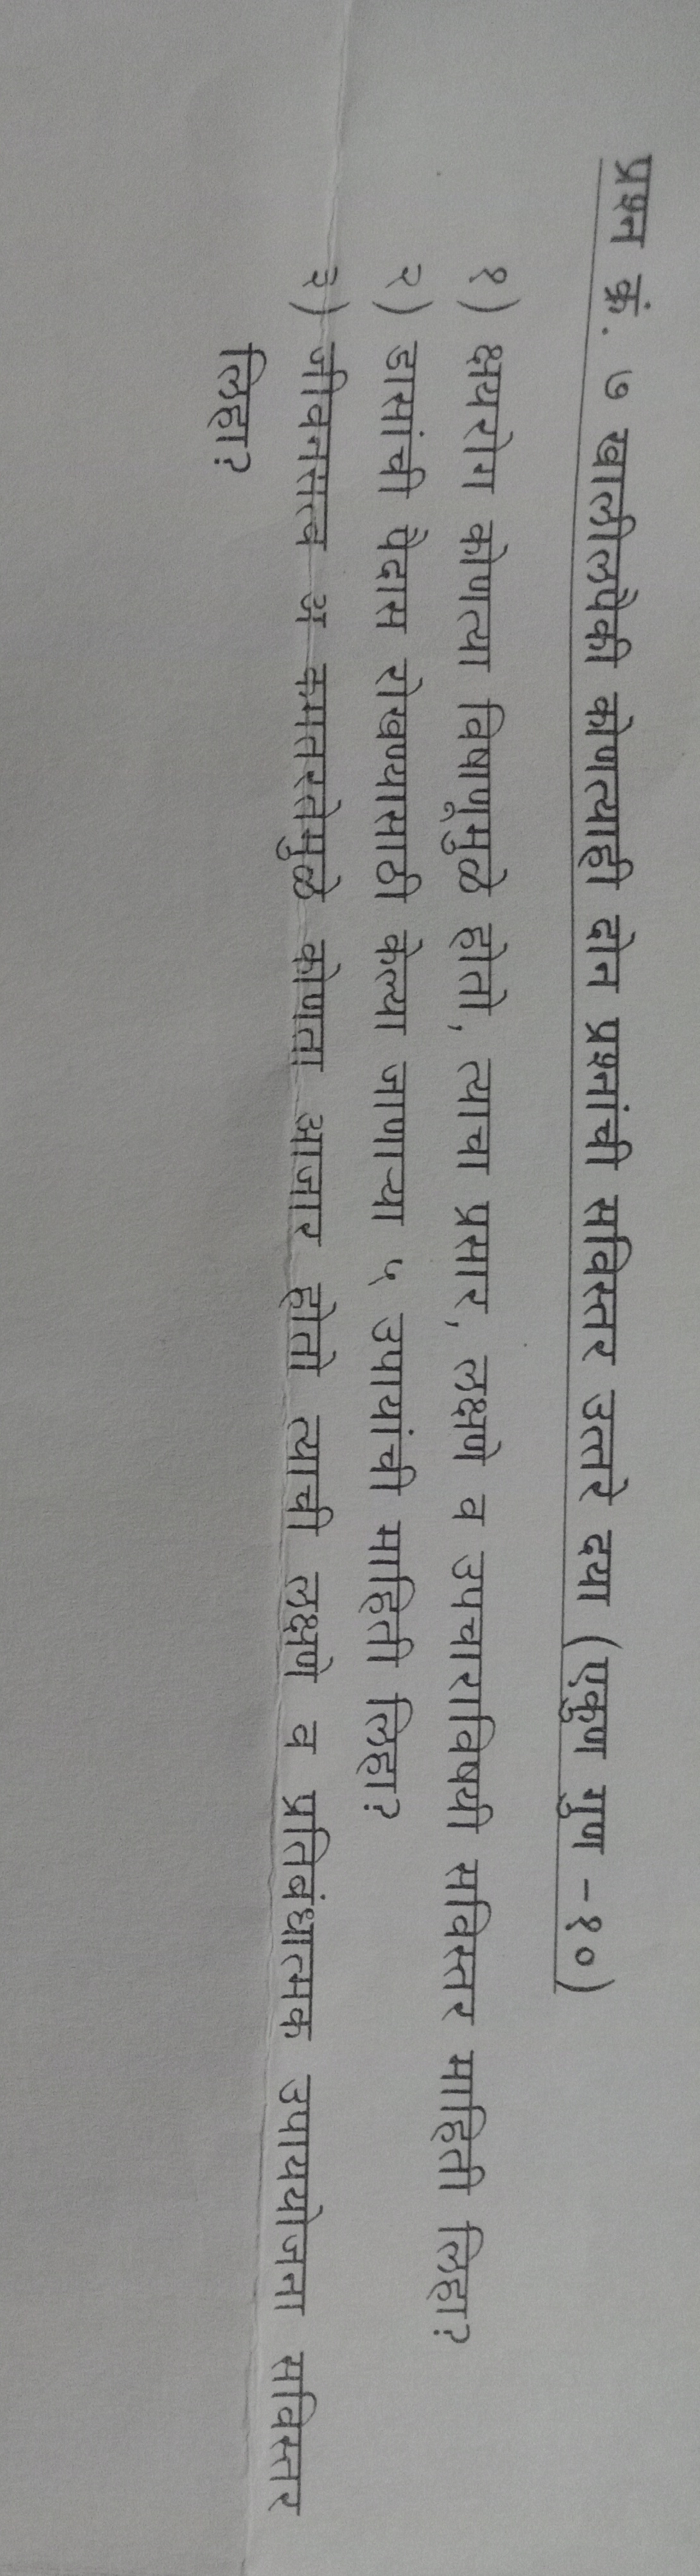 प्रश्न क्रं. ७ खालीलपैकी कोणत्याही दोन प्रश्नांची सविस्तर उत्तरे दया (एकुण गुण -१०)
१) क्षयरोग कोणत्या विषाणूमुळे होतो, त्याचा प्रसार, लक्षणे व उपचाराविषयी सविस्तर माहिती लिहा?
२) डासांची पैदास रोखण्यासाठी केल्या जाणाऱ्या ५ उपायांची माहिती लिहा?
३) जीवनसत्व अ कमतरतेमुळे कोणता आजार होतो त्याची लक्षणे व प्रतिबंधात्मक उपाययोजना सविस्तर
लिहा?